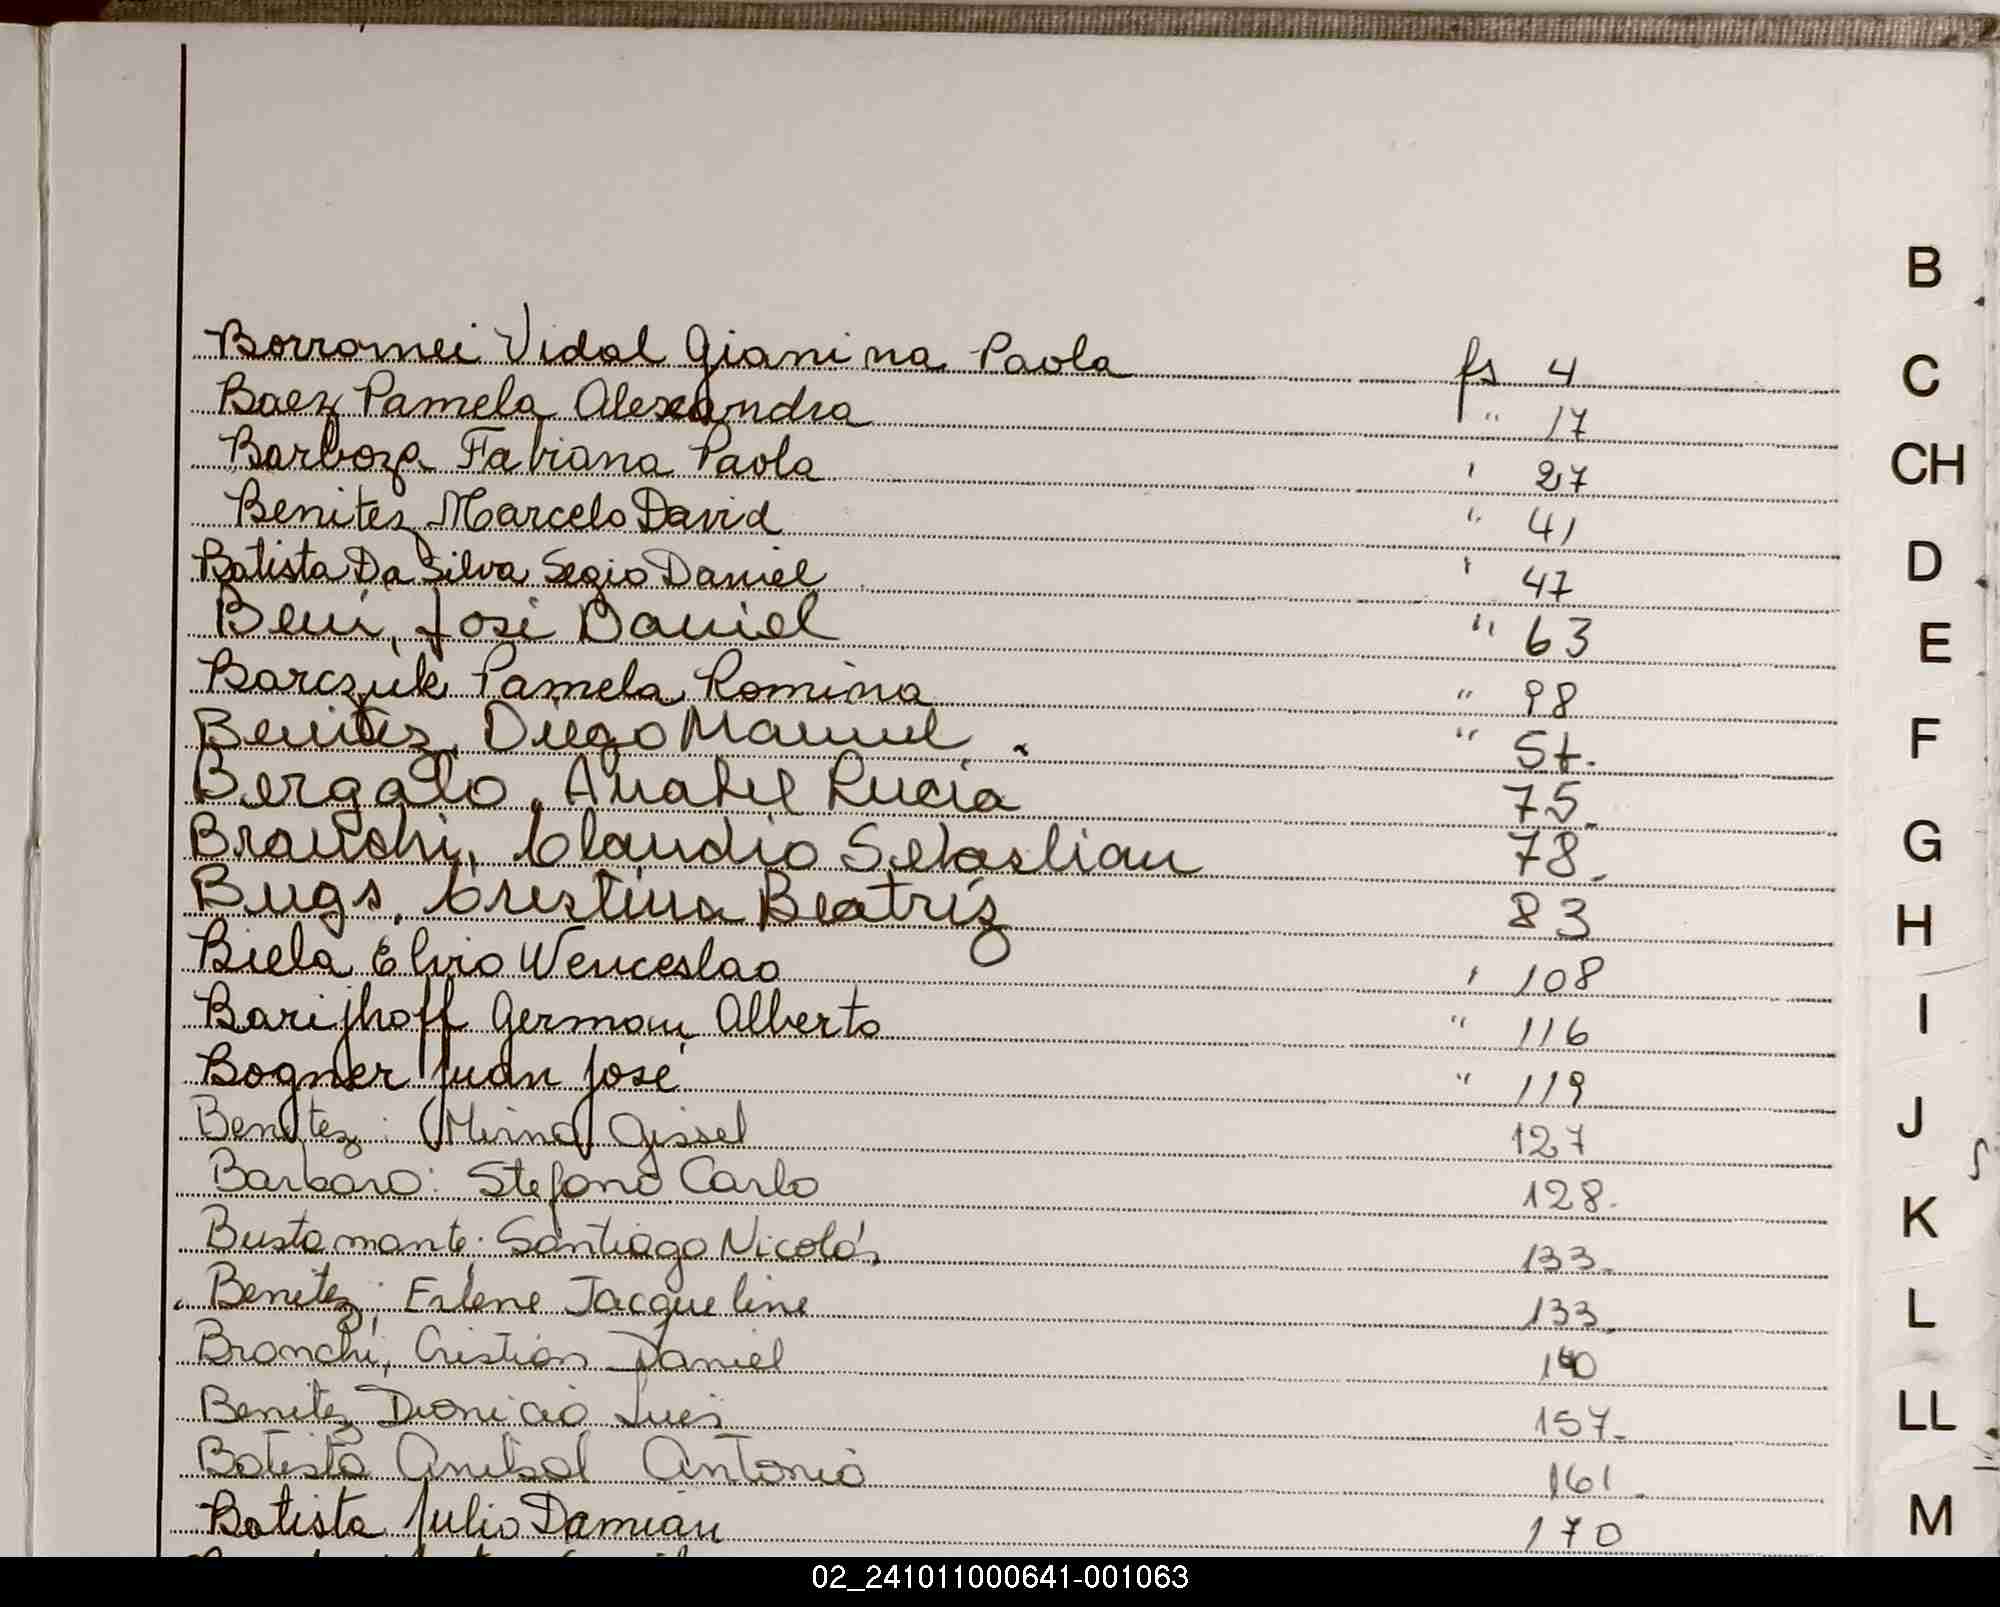 Borromei Vidal Gianina Paola fs 4
Baez Pamela Alexandra " 17
Barboza Fabiana Paola " 27
Benitez Marcelo David " 41
Batista Da Silva Segio Daniel " 47
José Daniel " 63
Barczuk Pamela Romina " 98
Benitez, Diego Manuel. " 57.
Bergallo, Anahel Lucia 75.
Branchi, Claudio Sebastian 78.
Bugs, Cristina Beatriz 83
Biela Elvio Wenceslao " 108
Barijhoff German Alberto " 116
Bogner Juan José " 119
Benitez: Mirna Gissel 127
Barbaro: Stefano Carlo 128.
Bustamante: Santiago Nicolás 133.
Benitez; Jacqueline 133.
Bronchi, Cristian Daniel 140
Benitez Dionicio Luis 157.
Batista Anibal Antonio 161.
Batista Julio Damian 170
B
C
CH
D
E
F
G
H
I
J
K
L
LL
M
02_241011000641-001063